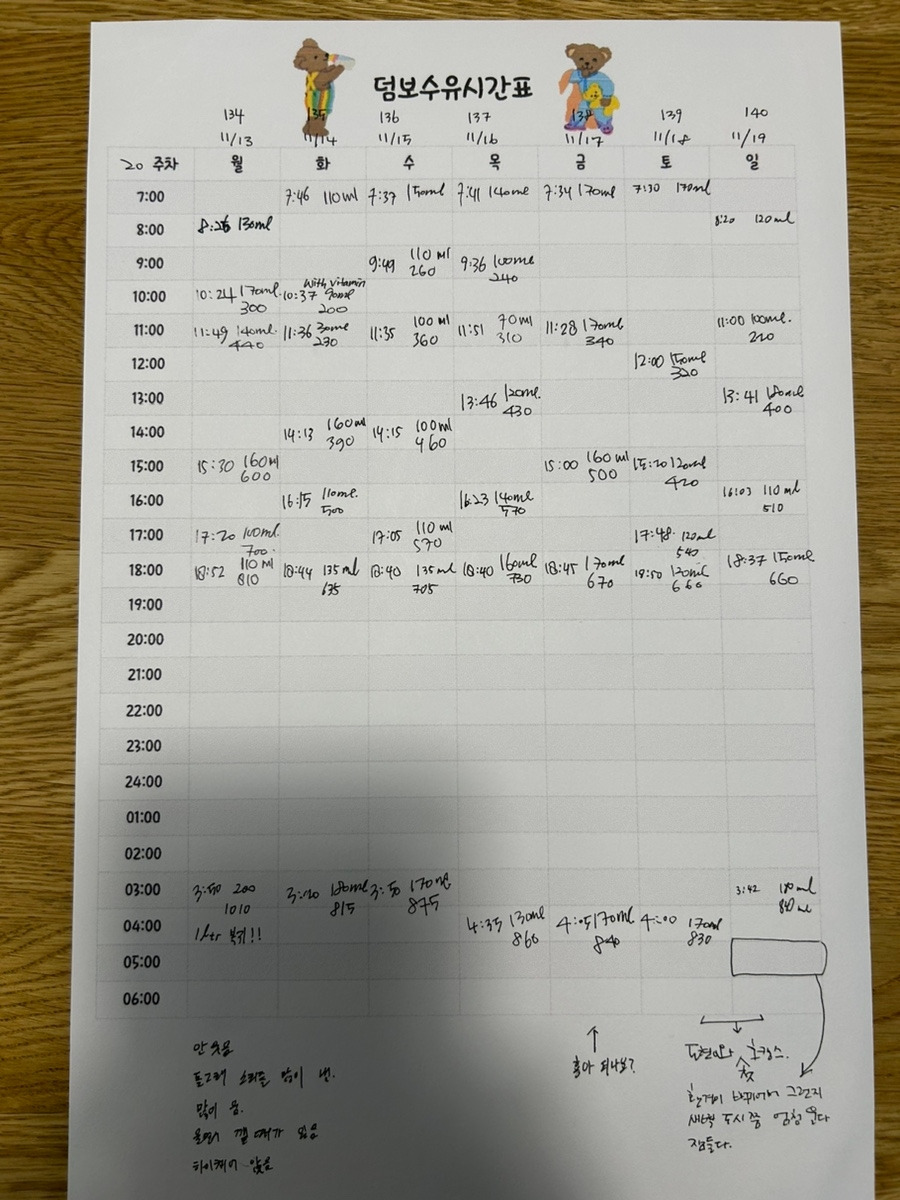 덤보수유시간표
134 135 136 137 138 139 140
11/13 11/14 11/15 11/16 11/17 11/18 11/19
20 주차 월 화 수 목 금 토 일
7:00 7:46 110ml 7:37 150ml 7:41 140ml 7:34 170ml 7:30 170ml
8:00 8:26 130ml 8:20 120ml
9:00 9:49 110ml 9:36 100ml
260 240
with vitamin
10:00 10:24 170ml 10:37 90ml
300 200
11:00 11:49 140ml. 11:36 30ml 11:35 100ml 11:51 70ml 11:28 170ml 11:00 100ml.
440 230 360 310 340 220
12:00 12:00 150ml
320
13:00 13:46 120ml. 13:41 180ml
430 400
14:00 14:13 160ml 14:15 100ml
390 460
15:00 15:30 160ml 15:00 160ml 15:20 120ml
600 500 420
16:00 16:15 110ml. 16:23 140ml 16:03 110ml
500 570 510
17:00 17:20 100ml. 17:05 110ml 17:48. 120ml
700. 570 540
18:00 18:52 110ml 18:44 135ml 18:40 135ml 18:40 160ml 18:45 170ml 18:50 120ml 18:37 150ml
810 635 705 730 670 660 660
19:00
20:00
21:00
22:00
23:00
24:00
01:00
02:00
03:00 3:50 200 3:20 180ml 3:50 170ml 3:42 180ml
1010 815 875 840ml
04:00 1ltr 복귀!! 4:35 130ml 4:05 170ml 4:00 170ml
860 840 830
05:00
06:00
안 웃음
돌고래 소리를 많이 냄.
많이 움.
울면서 깰 때가 있음
하이체어 앉음
호캉스.
첫
환경이 바뀌어서 그런지
새벽 두시쯤 엄청 운다
잠들다.